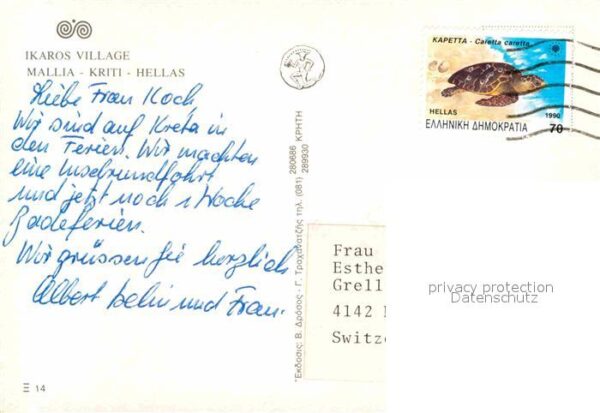 IKAROS VILLAGE
MALLIA - KRITI - HELLAS
Liebe Frau Koch
Wir sind auf Kreta in
den Ferien. Wir machten
eine Inselrundfahrt
und jetzt noch 1 Woche
Badeferien.
Wir grüssen Sie herzlich
Albert und Frau.
Ξ 14
Ἔκδοσις: Β. Δρόσος - Γ. Τραχανατζῆς τηλ. (081) 280686 ΚΡΗΤΗ
289930
ΚΑΡΕΤΤΑ - Caretta caretta
HELLAS 1990
ΕΛΛΗΝΙΚΗ ΔΗΜΟΚΡΑΤΙΑ 70
Frau
Esthe
Grell
4142
Switze
privacy protection
Datenschutz